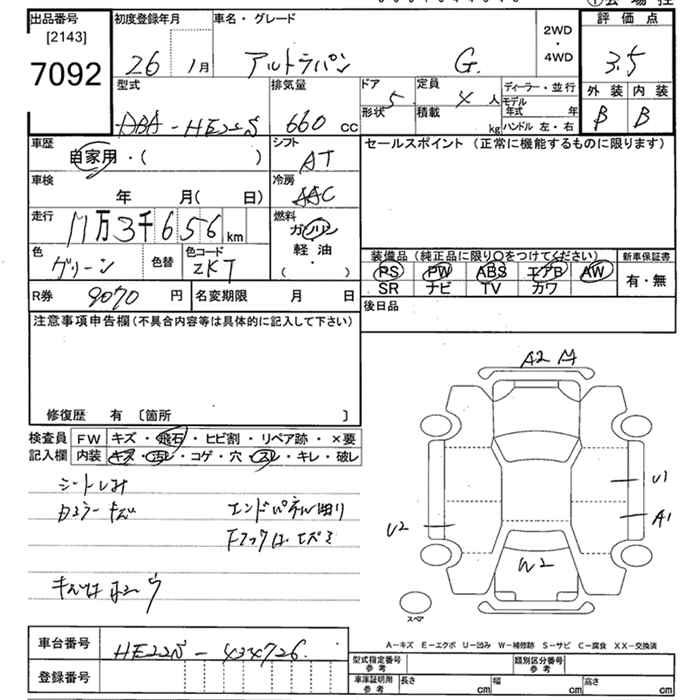 出品番号
[2143]
7092
初度登録年月
26 1月
車名・グレード
アルトラパン G.
2WD
・
4WD
評価点
3.5
外装 内装
B B
型式
ABA-HE22S
排気量
660 cc
ドア 5
形状
定員 4 人
積載 kg
ディーラー・並行
モデル年式 年
ハンドル 左・右
車歴
自家用・( )
シフト
AT
セールスポイント (正常に機能するものに限ります)
車検
年 月( 日)
冷房
AAC
走行
11万3千656km
燃料
ガソリン
軽油
( ・ )
色
グリーン
色替
色コード
ZKT
装備品 (純正品に限り○をつけてください)
新車保証書
PS PW ABS エアB AW
SR ナビ TV カワ
有・無
R券
9070 円
名変期限 月 日
後日品
注意事項申告欄(不具合内容等は具体的に記入して下さい)
修復歴 有 〔箇所 〕
検査員
記入欄
FW キズ・飛石・ヒビ割・リペア跡・×要
内装 キズ・汚レ・コゲ・穴・スレ・キレ・破レ
シートしみ
エンドパネル曲り
A2
U1
A1
U2
W2
スペア
車台番号
HE22S-434726
登録番号
A-キズ E-エクボ U-凹み W-補修跡 S-サビ C-腐食 XX-交換済
型式指定番号
参考
類別区分番号
参考
車庫証明用
参考
長さ cm 幅 cm 高さ cm